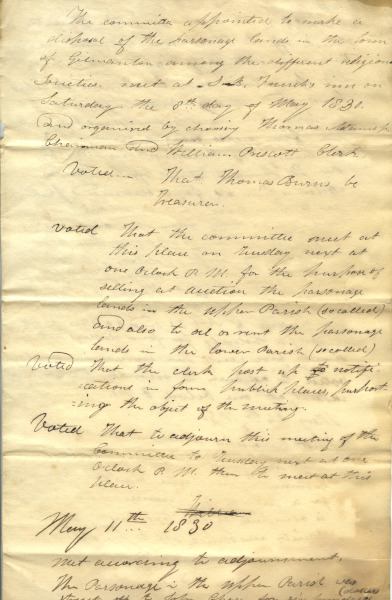 The committee appointed to make a
disposal of the parsonage lands in the town
of Gilmanton among the different religious
Societies met at S. K. French's inn on
Saturday the 8th day of May 1830.
and organised by choosing Thomas
Chairman and William Prescott Clerk
Voted That Thomas Burns be
Treasurer.
Voted That the committee meet at
this place on Tuesday next at
one Oclock P. M. for the purpose of
selling at auction the parsonage
lands in the Upper Parish (so called)
and also to sel or rent the parsonage
lands in the lower Parish (so called)
Voted That the clerk post up notifi
cations in four publick places, purport
ing the object of the meeting.
Voted That to adjourn this meeting of the
Committee to Tuesday next at one
Oclock P. M. then to meet at this
place.
May 11th 1830
met according to adjournment,
The Parsonage in the Upper Parish was
struck off to John